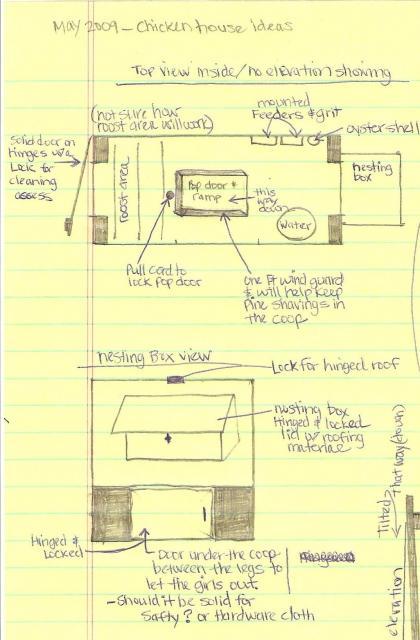 May 2009 - Chicken house Ideas
Top view inside/no elevation showing
(not sure how
roost area will work)
mounted
Feeders & grit
oyster shell
Solid door on
hinges w/a
Lock for
cleaning
assess
roost area
Pop door &
ramp
this
way
down
nesting
box
Water
Pull cord to
lock pop door
one ft wind guard
& will help keep
Pine shavings in
the coop
nesting Box view
Lock for hinged roof
nesting box
Hinged & locked
lid w/ roofing
material
Hinged &
Locked
Door under the coop
between the legs to
let the girls out.
- Should it be solid for
Safty? or hardware cloth
Tilted
That way (down)
elevation